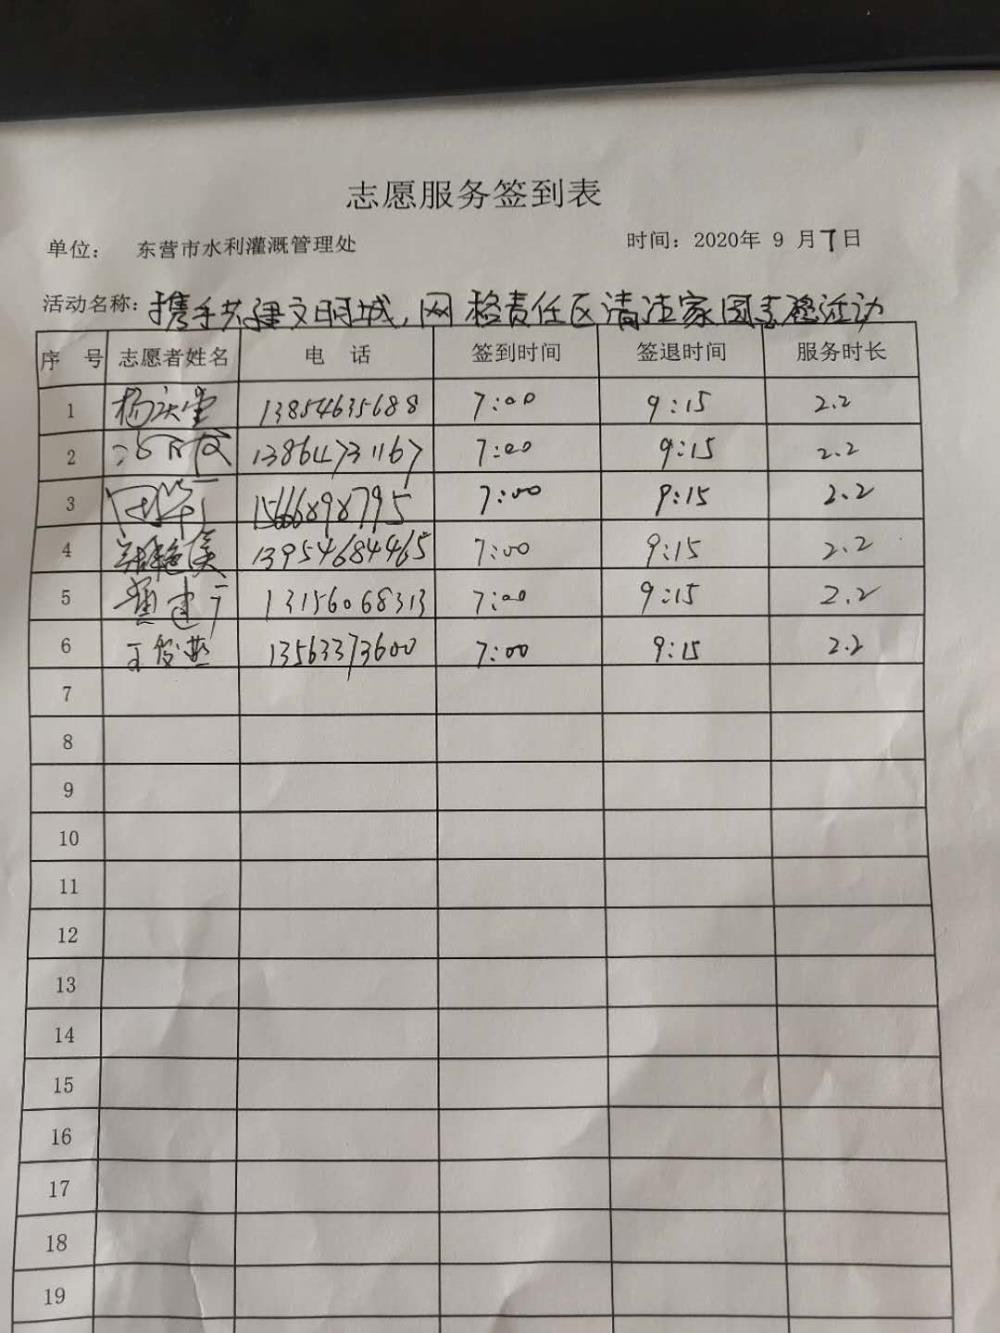 志愿服务签到表
单位： 东营市水利灌溉管理处 时间：2020年 9 月 7日
活动名称：携手共建文明城,网格责任区清洁家园志愿活动
序 号 志愿者姓名 电 话 签到时间 签退时间 服务时长
1 13854635688 7:00 9:15 2.2
2 13864731167 7:00 9:15 2.2
3 15666898795 7:00 9:15 2.2
4 13954684465 7:00 9:15 2.2
5 13156068313 7:00 9:15 2.2
6 13563373600 7:00 9:15 2.2
7
8
9
10
11
12
13
14
15
16
17
18
19